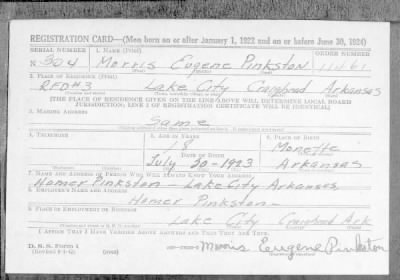 REGISTRATION CARD—(Men born on or after January 1, 1922 and on or before June 30, 1924)
SERIAL NUMBER 1. NAME (Print) ORDER NUMBER
N 304 Morris Eugene Pinkston 11461
2. PLACE OF RESIDENCE (Print)
RFD#3 Lake City Craighead Arkansas
[THE PLACE OF RESIDENCE GIVEN ON THE LINE ABOVE WILL DETERMINE LOCAL BOARD
JURISDICTION; LINE 2 OF REGISTRATION CERTIFICATE WILL BE IDENTICAL]
3. MAILING ADDRESS
Same
4. TELEPHONE 5. AGE IN YEARS 6. PLACE OF BIRTH
18 Monette
DATE OF BIRTH
July 20-1923 Arkansas
7. NAME AND ADDRESS OF PERSON WHO WILL ALWAYS KNOW YOUR ADDRESS
Homer Pinkston - Lake City Arkansas
8. EMPLOYER'S NAME AND ADDRESS
Homer Pinkston -
9. PLACE OF EMPLOYMENT OR BUSINESS
Lake City Craighead Ark
I AFFIRM THAT I HAVE VERIFIED ABOVE ANSWERS AND THAT THEY ARE TRUE.
D. S. S. Form 1 Morris Euugene Pinkston